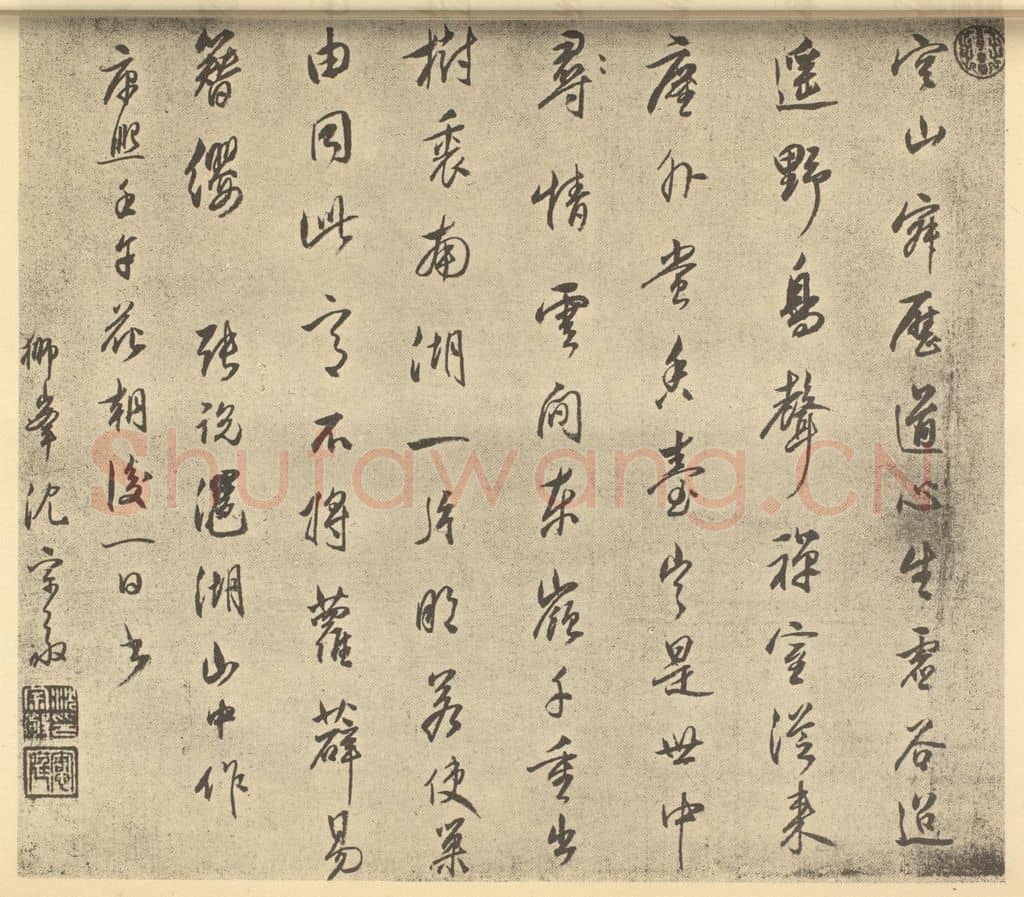 空山寂歷道心生虛谷迢
遙野鳥聲禪室從來
塵外賞香臺豈是世中
尋情雲間東嶺千重出
樹裏南湖一片明若使巢
由同此意不將蘿薜易
簪纓 張說灉湖山中作
康熙壬午花朝後一日書
獅峯沈宗敬
Shufawang.CN